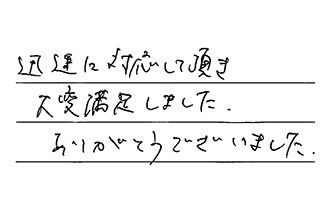 迅速に対応して頂き
大変満足しました.
ありがとうございました.